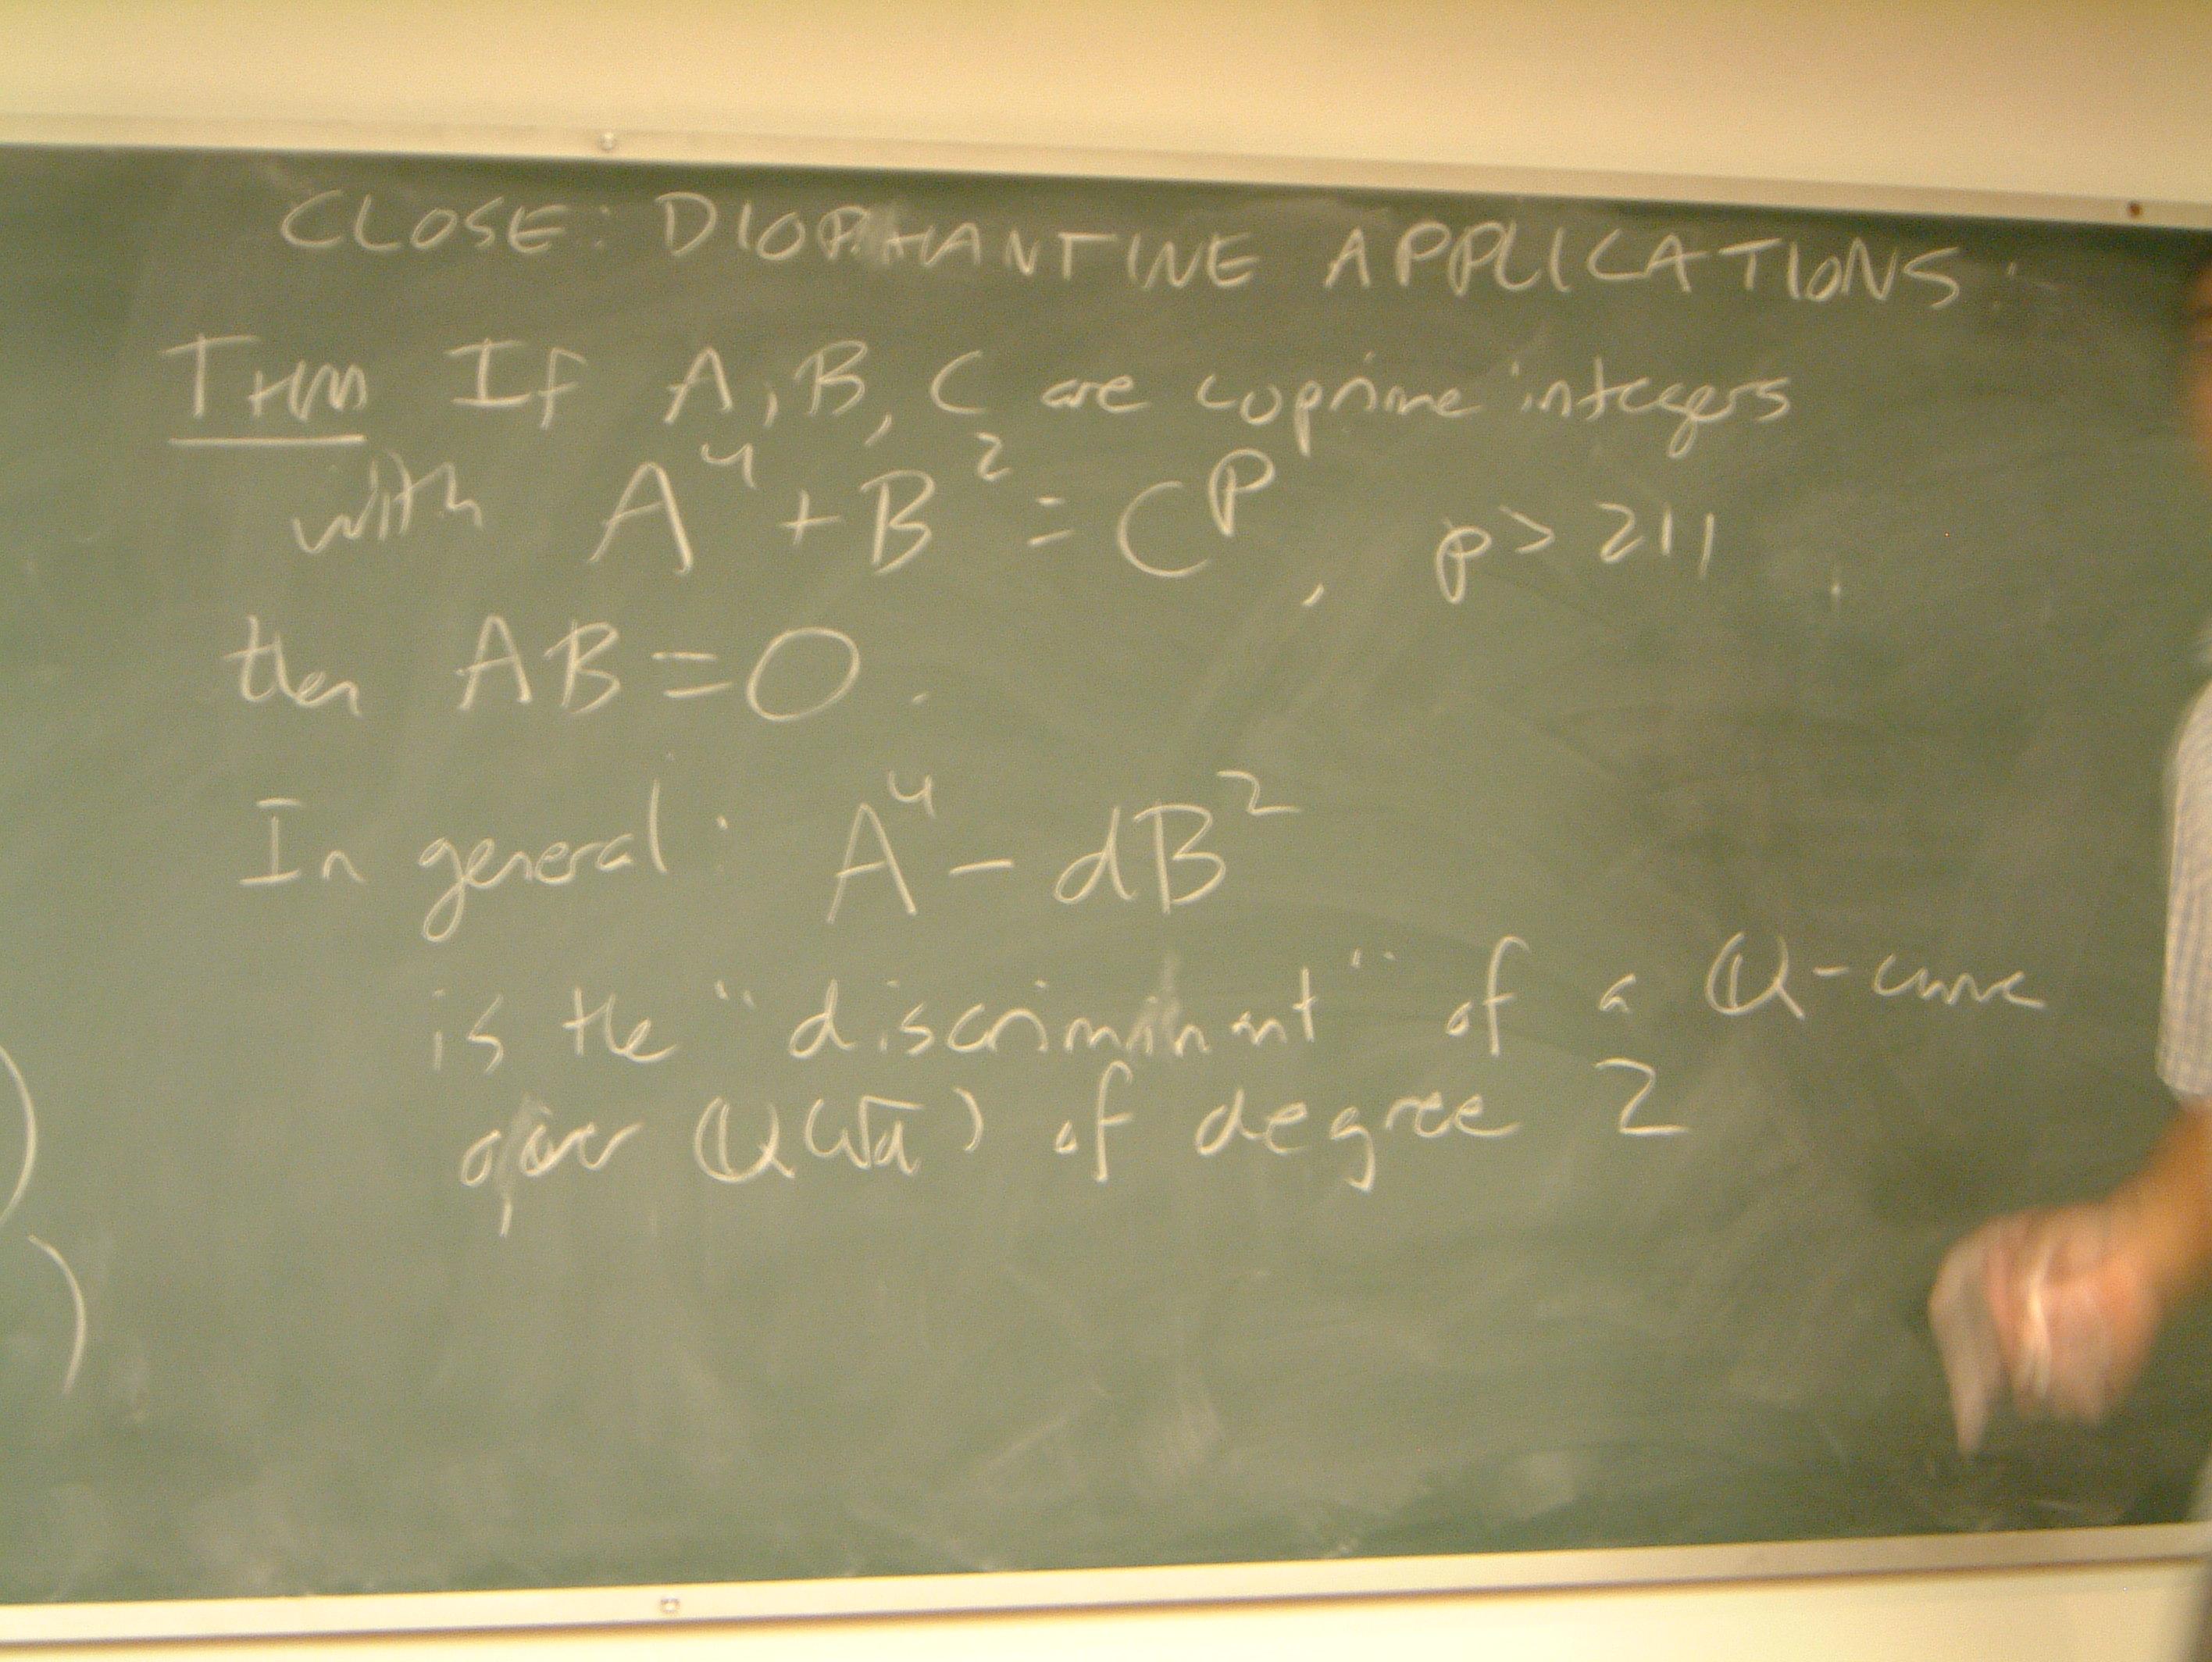 CLOSE: DIOPHANTINE APPLICATIONS:
THM If A, B, C are coprime integers
with A⁴ + B² = Cᵖ, p > 211
then AB = 0.
In general: A⁴ - dB²
is the "discriminant" of a Q-curve
over Q(√d) of degree 2